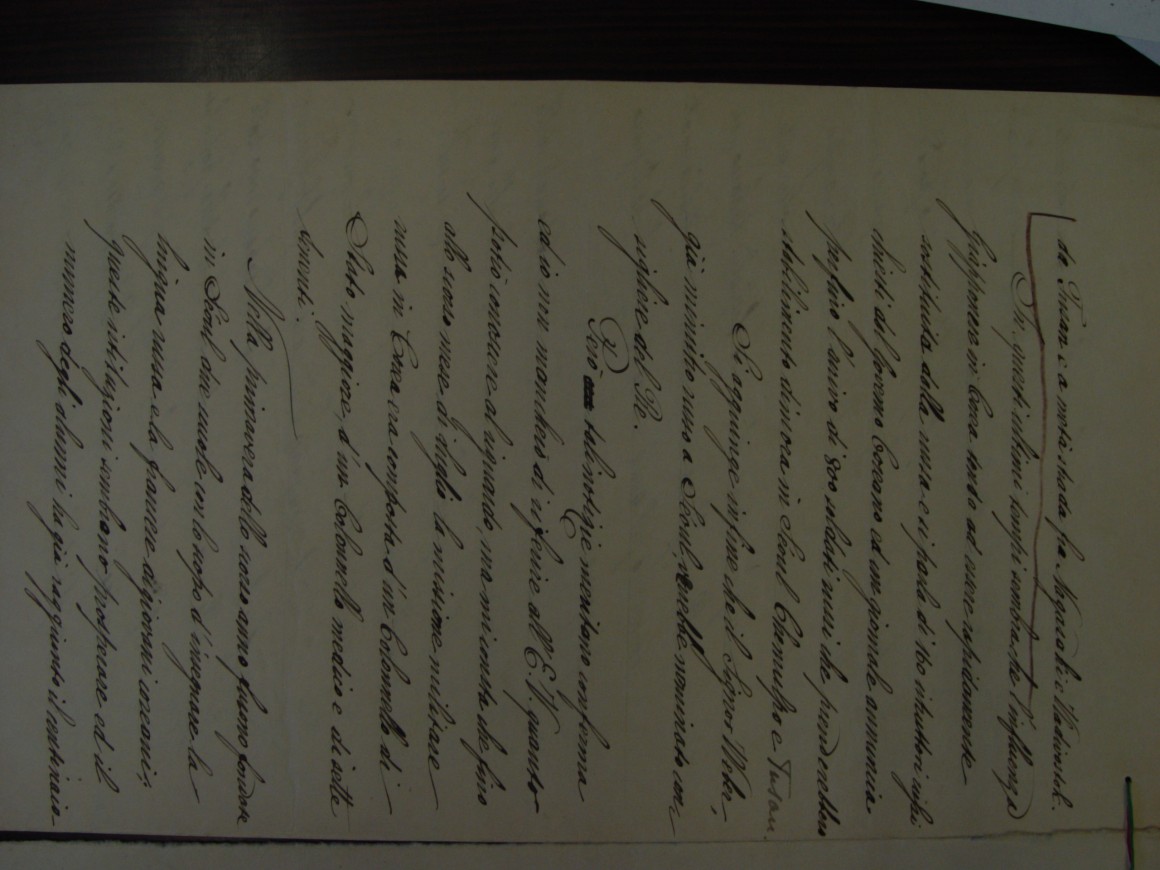 da Fusan e a metà strada fra Nagasaki e Vladivostok.
In questi ultimi tempi sembra che l'influenza
Giapponese in Corea tenda ad essere rapidamente
sostituita dalla russa e si parla di 160 istruttori russi
chiesti dal Governo Coreano ed un giornale annunzia
perfino l'arrivo di 800 soldati russi che prenderebbero
stabilimento di dimora in Seoul Chemulpo e Fusan.
Si aggiunge infine che il Signor Weber,
già ministro russo a Seoul, verrebbe nominato con-
sigliere del Re.
Però tali notizie meritano conferma
ed io non mancherò di riferire all'E.V. quanto
potrò conoscere al riguardo, ma mi consta che fino
allo scorso mese di luglio la missione militare
russa in Corea era composta d'un Colonnello di
Stato maggiore, d'un Colonnello medico e di sette
tenenti.
Nella primavera dello scorso anno furono fondate
in Seoul due scuole con lo scopo d'insegnare la
lingua russa e la francese ai giovani coreani;
queste istituzioni sembrano prosperare ed il
numero degli alunni ha già raggiunto il centinaio